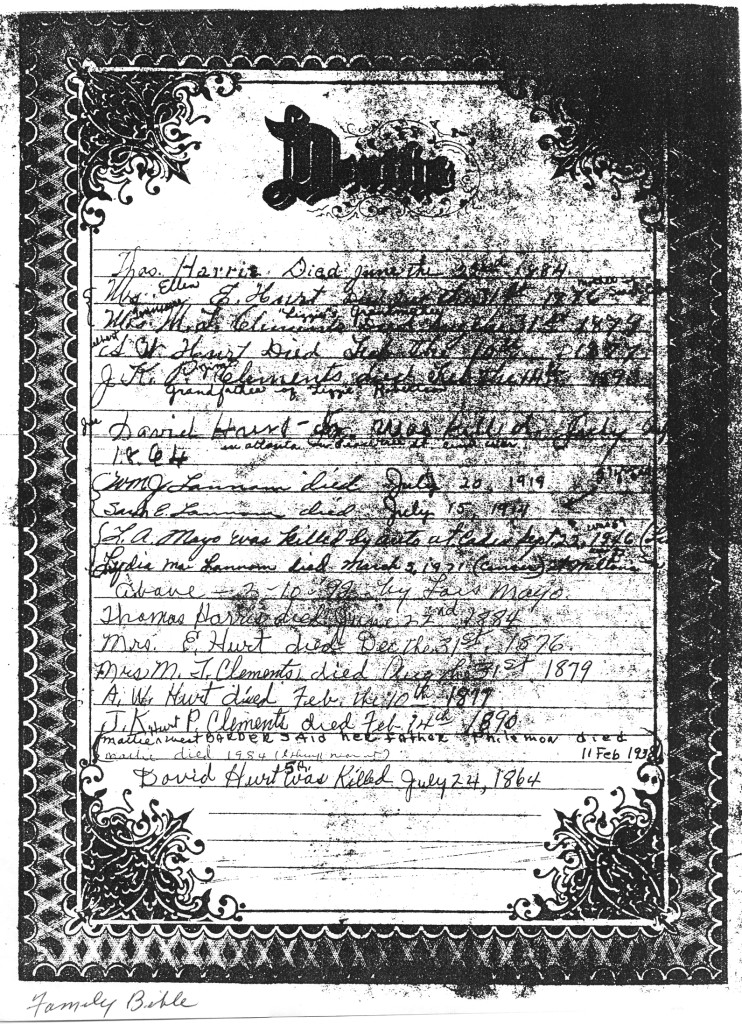 Deaths
Thos. Harris Died June the 22nd 1884
Ellen
Mrs. E. Hurt the 31st 1876
"Lizzie's" Grandmother
Mrs M. T. Clements Died Aug the 31st 1879
A. W. Hurt Died Feb the 10th 1877
J. K. P. Clements died Feb the 14th 1890
Grandfather of Lizzie
David Hurt was killed July
1864
in atlanta war
WmJ Lannom died July 20, 1919
Sara E. Lannom died July 15, 1914
L. A. Mayo was killed by auto at Cadiz Sept 22, 1956
Lydia Mai Lannom died March 2, 1971 (Cancer)
Above - 3-10-92 by Lois Mayo
Thomas Harris died June 22nd 1884
Mrs. E. Hurt died Dec the 31st, 1876
Mrs M. T. Clements, died Aug the 31st 1879
A. W. Hurt died Feb. the 10th 1877
J. K. P. Clements died Feb. 14th 1890
Mattie Hurt BARBER SAID her father Philemon died
11 Feb 1938
mattie died 1984
5th
David Hurt was Killed July 24, 1864
Family Bible